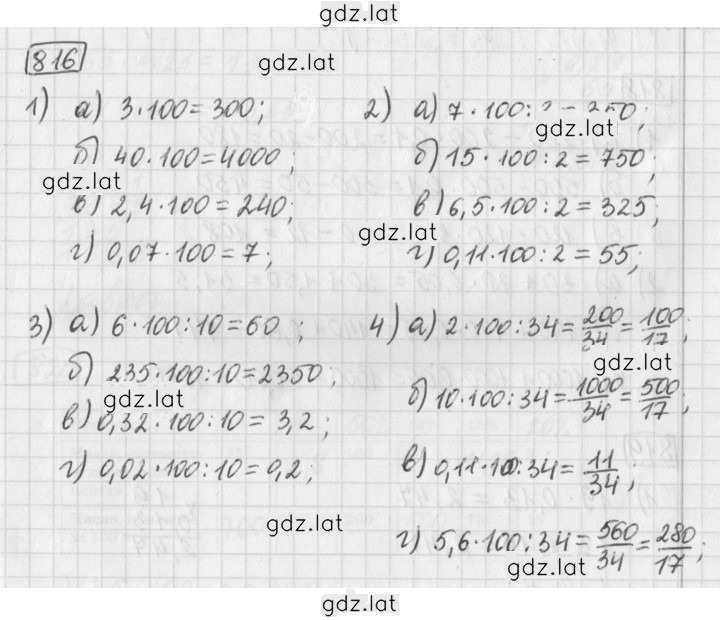 gdz.lat
816
gdz.lat
1) а) 3·100=300;
б) 40·100=4000;
gdz.lat
в) 2,4·100=240;
г) 0,07·100=7;
2) а) 7·100: = 350;
gdz.lat
б) 15·100:2=750;
в) 6,5·100:2=325;
gdz.lat
г) 0,11·100:2=55;
3) а) 6·100:10=60;
б) 235·100:10=2350;
gdz.lat
в) 0,32·100:10=3,2;
г) 0,02·100:10=0,2;
gdz.lat
4) а) 2·100:34=200/34=100/17;
gdz.lat
б) 10·100:34=1000/34=500/17;
в) 0,11·100:34=11/34;
г) 5,6·100:34=560/34=280/17;
gdz.lat
gdz.lat